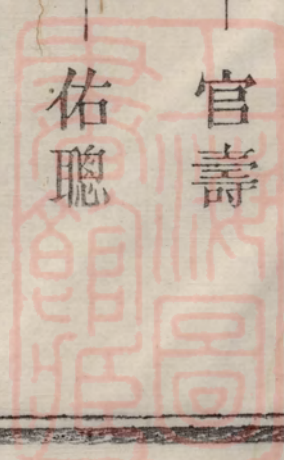 官壽
佑聰